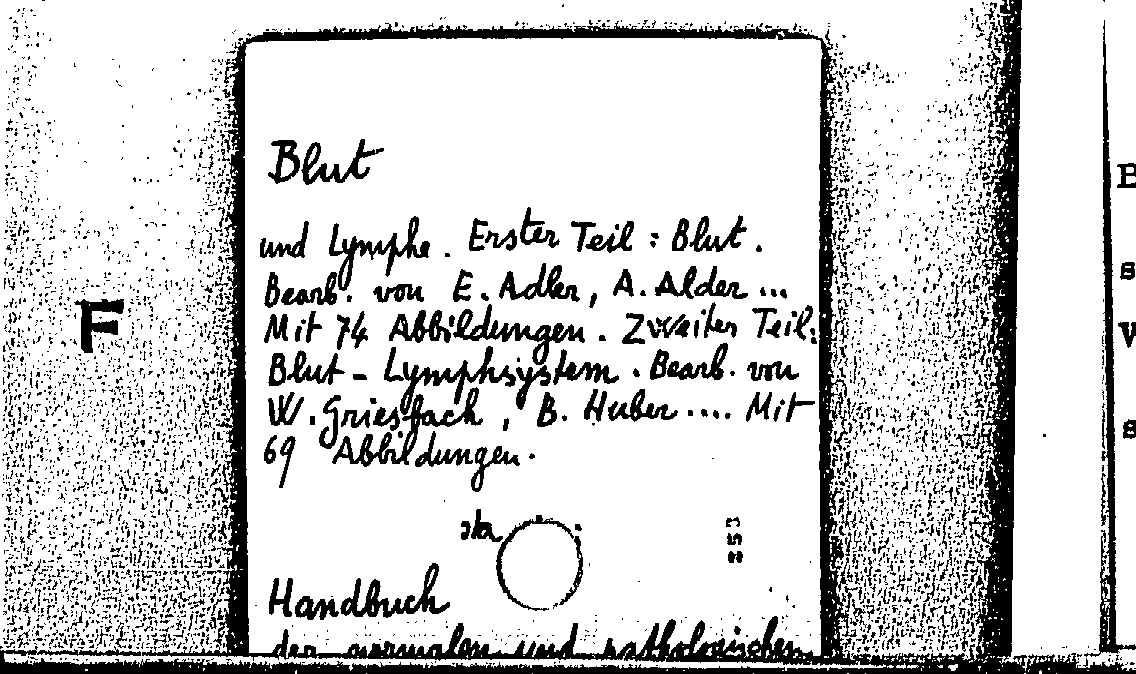 Blut
und Lymphe. Erster Teil : Blut.
Bearb. von E. Adler, A. Alder ...
Mit 74 Abbildungen. Zweiter Teil:
Blut - Lymphsystem. Bearb. von
W. Griesbach, B. Huber .... Mit
69 Abbildungen.
Handbuch
der normalen und pathologischen
F